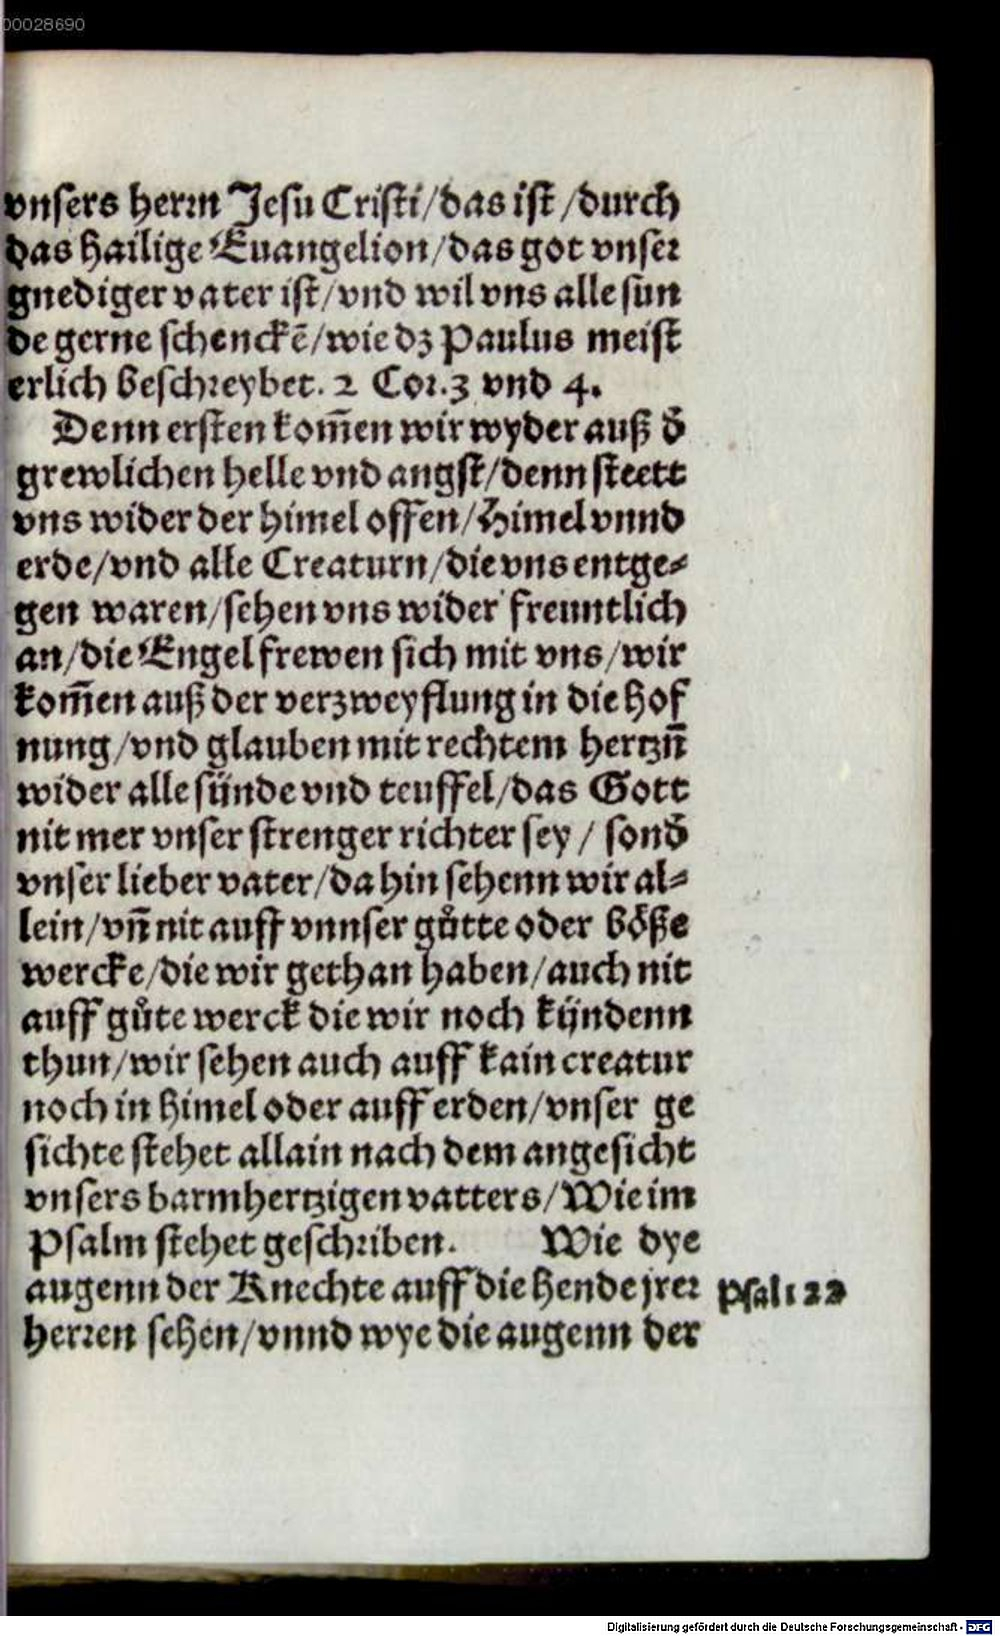 00028690
vnsers herrn Jesu Cristi/das ist/durch
das hailige Euangelion/das got vnser
gnediger vater ist/vnd wil vns alle sun
de gerne schenckē/wie dz Paulus meist
erlich beschreybet. 2 Cor.3 vnd 4.
Denn ersten kom̄en wir wyder auß d̄
grewlichen helle vnd angst/denn steett
vns wider der himel offen/Himel vnnd
erde/vnd alle Creaturn/die vns entge⸗
gen waren/sehen vns wider freuntlich
an/die Engel frewen sich mit vns/wir
kom̄en auß der verzweyflung in die hof
nung/vnd glauben mit rechtem hertzn̄
wider alle sünde vnd teuffel/das Gott
nit mer vnser strenger richter sey/ sond̄
vnser lieber vater/da hin sehenn wir al⸗
lein/vn̄ nit auff vnnser gůtte oder böße
wercke/die wir gethan haben/auch nit
auff gůte werck die wir noch kündenn
thun/wir sehen auch auff kain creatur
noch in himel oder auff erden/vnser ge
sichte stehet allain nach dem angesicht
vnsers barmhertzigen vatters/Wie im
Psalm stehet geschriben. Wie dye
augenn der Knechte auff die hende jrer
herren sehen/vnnd wye die augenn der
Psal 122
Digitalisierung gefördert durch die Deutsche Forschungsgemeinschaft - DFG